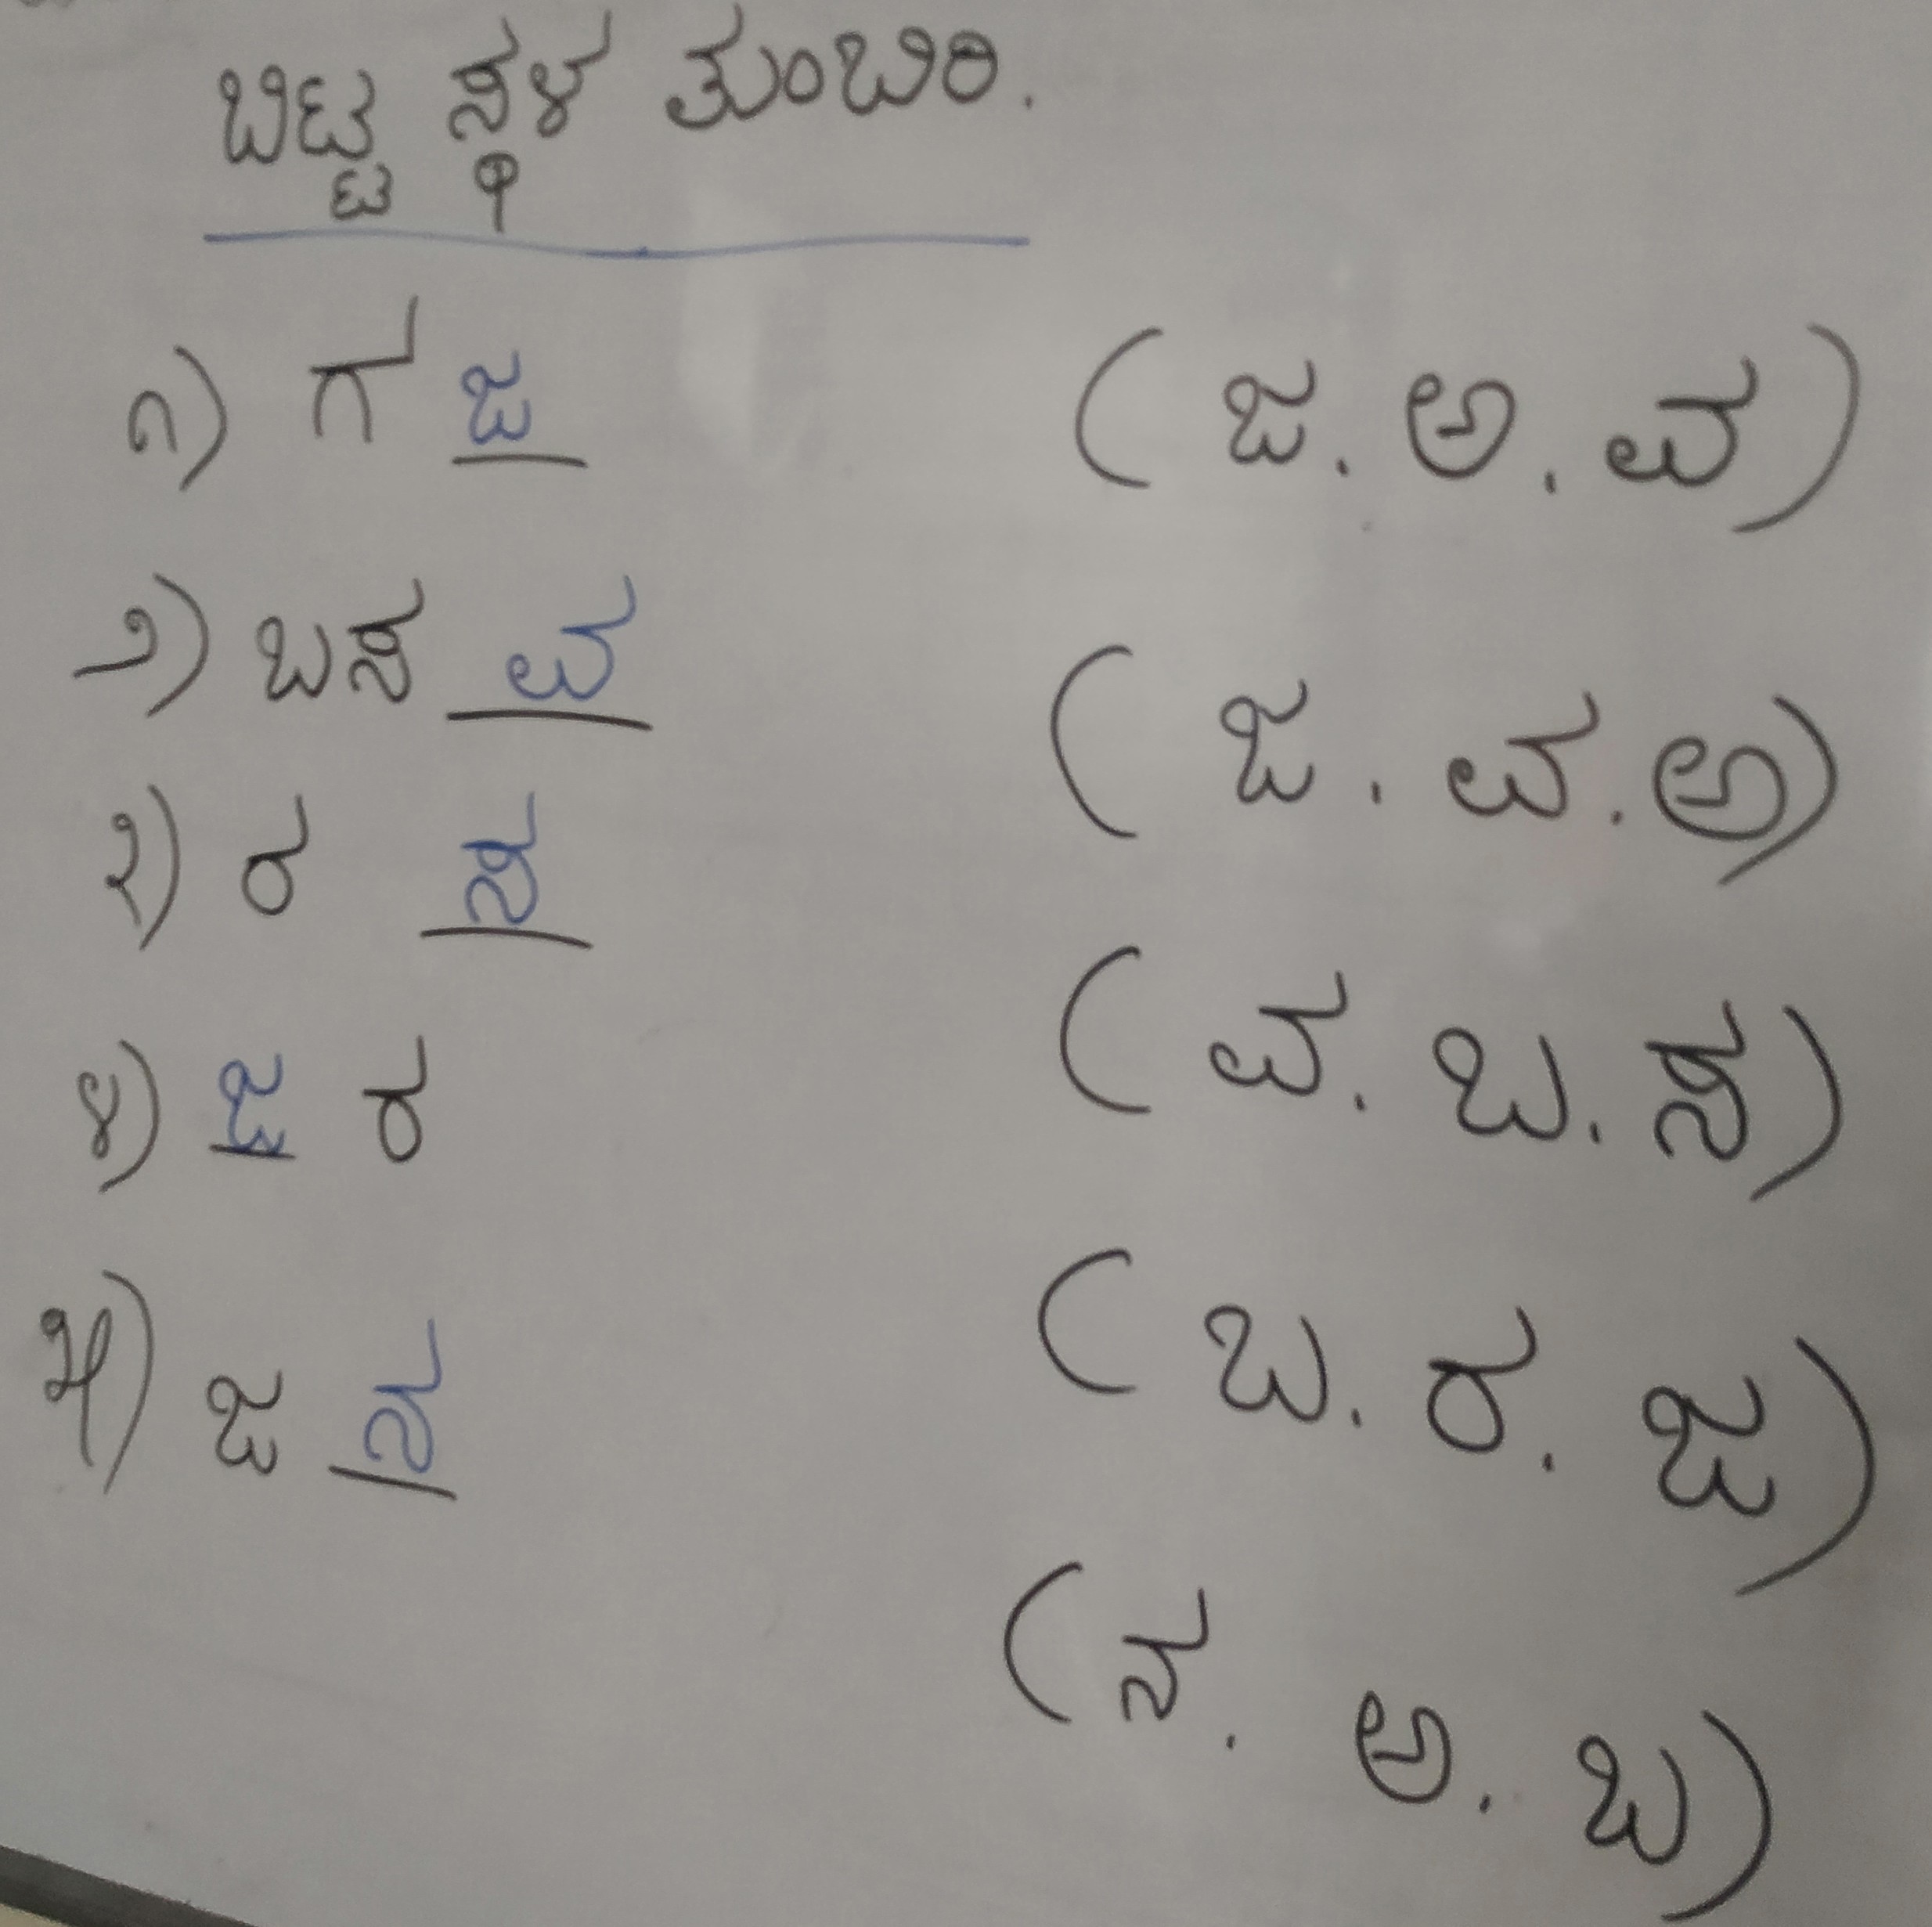 ಬಿಟ್ಟ ಸ್ಥಳ ತುಂಬಿರಿ.
೧) ಗ ಜ (ಜ. ಅ. ವ)
೨) ಬಸ ವ (ಜ. ವ. ಅ)
೩) ರ ಸ (ವ. ಬ. ಸ)
೪) ಜ ರ (ಬ. ರ. ಜ)
೫) ಜ ನ (ನ. ಅ. ಬ)